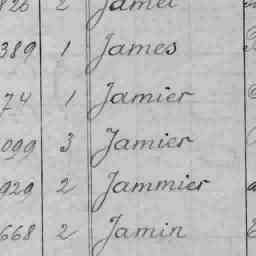 2 Jamet
389 1 James
74 1 Jamier
099 3 Jamier
929 2 Jammier
668 2 Jamin